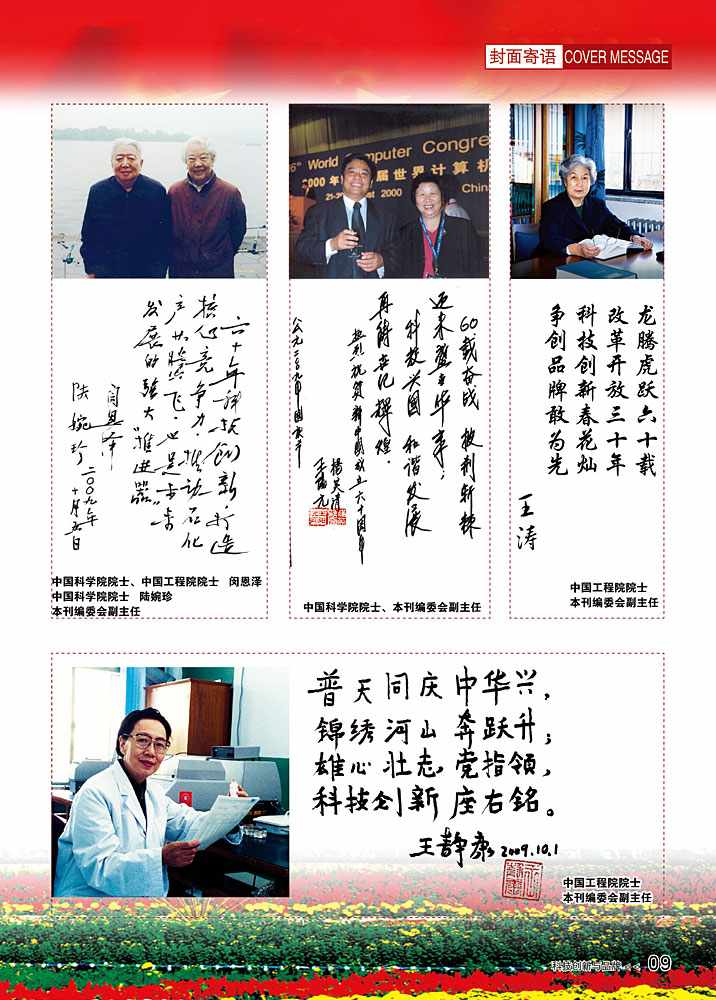 封面寄语 COVER MESSAGE
World Computer Congre
2000 年 届世界计算机
2000 Chin
六十年科技创新,打造
核心竞争力,推动石化
产业腾飞,也是未来
发展的强大“推进器”
闵恩泽
陆婉珍 二〇〇九年
十月五日
中国科学院院士、中国工程院院士 闵恩泽
中国科学院院士 陆婉珍
本刊编委会副主任
60载奋战 披荆斩棘
迎来盛世华章;
科教兴国 和谐发展
再铸世纪辉煌.
热烈祝贺新中国成立六十周年
杨芙清
王阳元
公元二〇〇九年国庆节
中国科学院院士、本刊编委会副主任
龙腾虎跃六十载
改革开放三十年
科技创新春花灿
争创品牌敢为先
王涛
中国工程院院士
本刊编委会副主任
普天同庆中华兴,
锦绣河山奔跃升;
雄心壮志党指领,
科技创新座右铭。
王静康 2009.10.1
中国工程院院士
本刊编委会副主任
科技创新与品牌<< 09